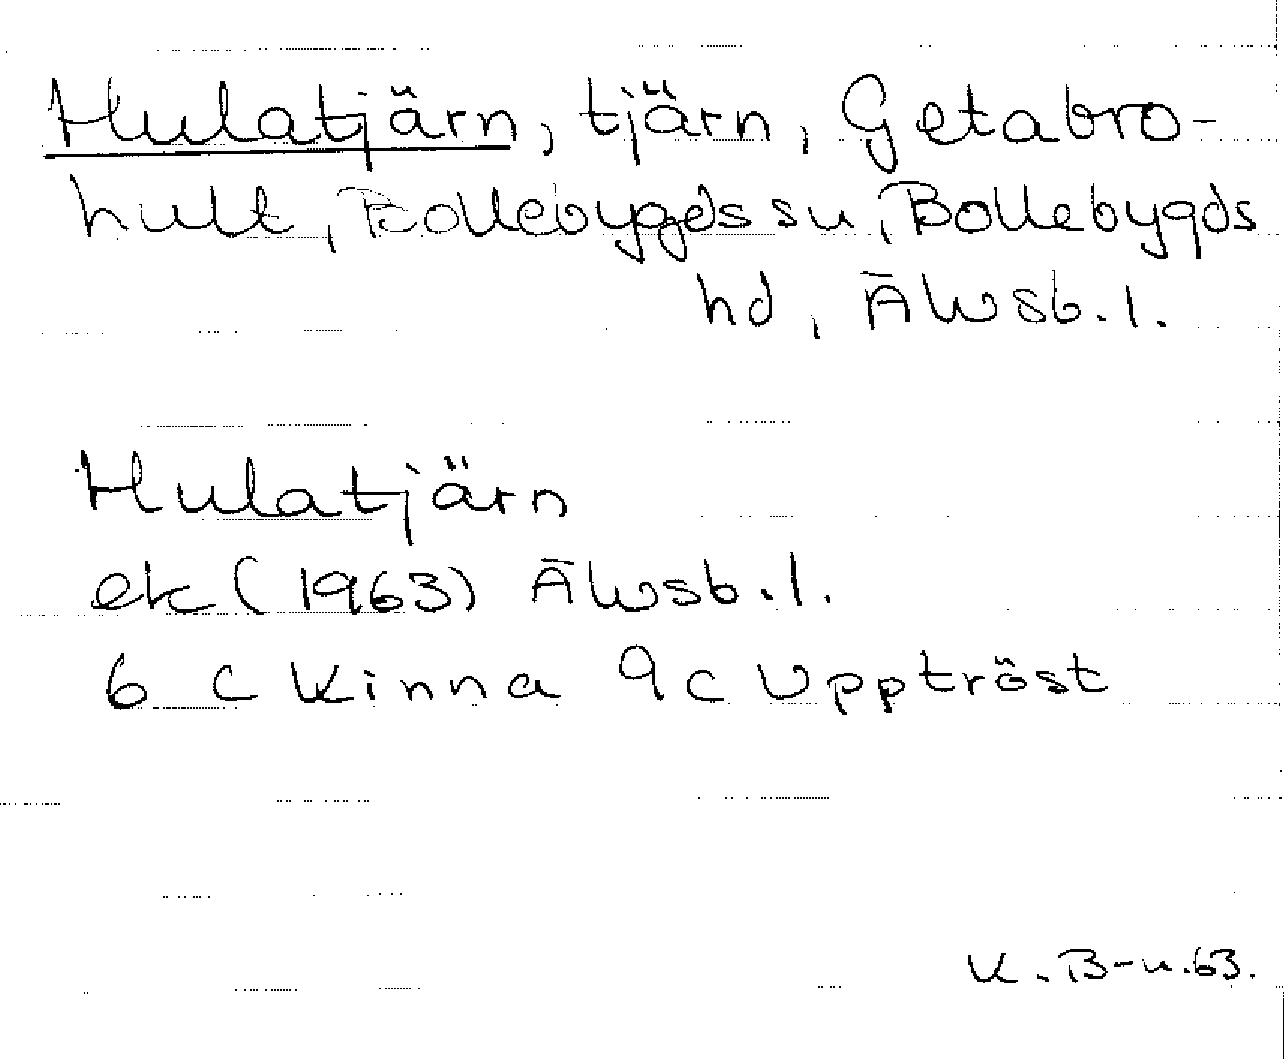 Hulatjärn, tjärn, Getabro-
hult, Bollebygds su, Bollebygds
hd, Älvsb. l.
Hulatjärn
ek (1963) Älvsb. l.
6 c Kinna 9 c Uppströst
K. B-n. 63.